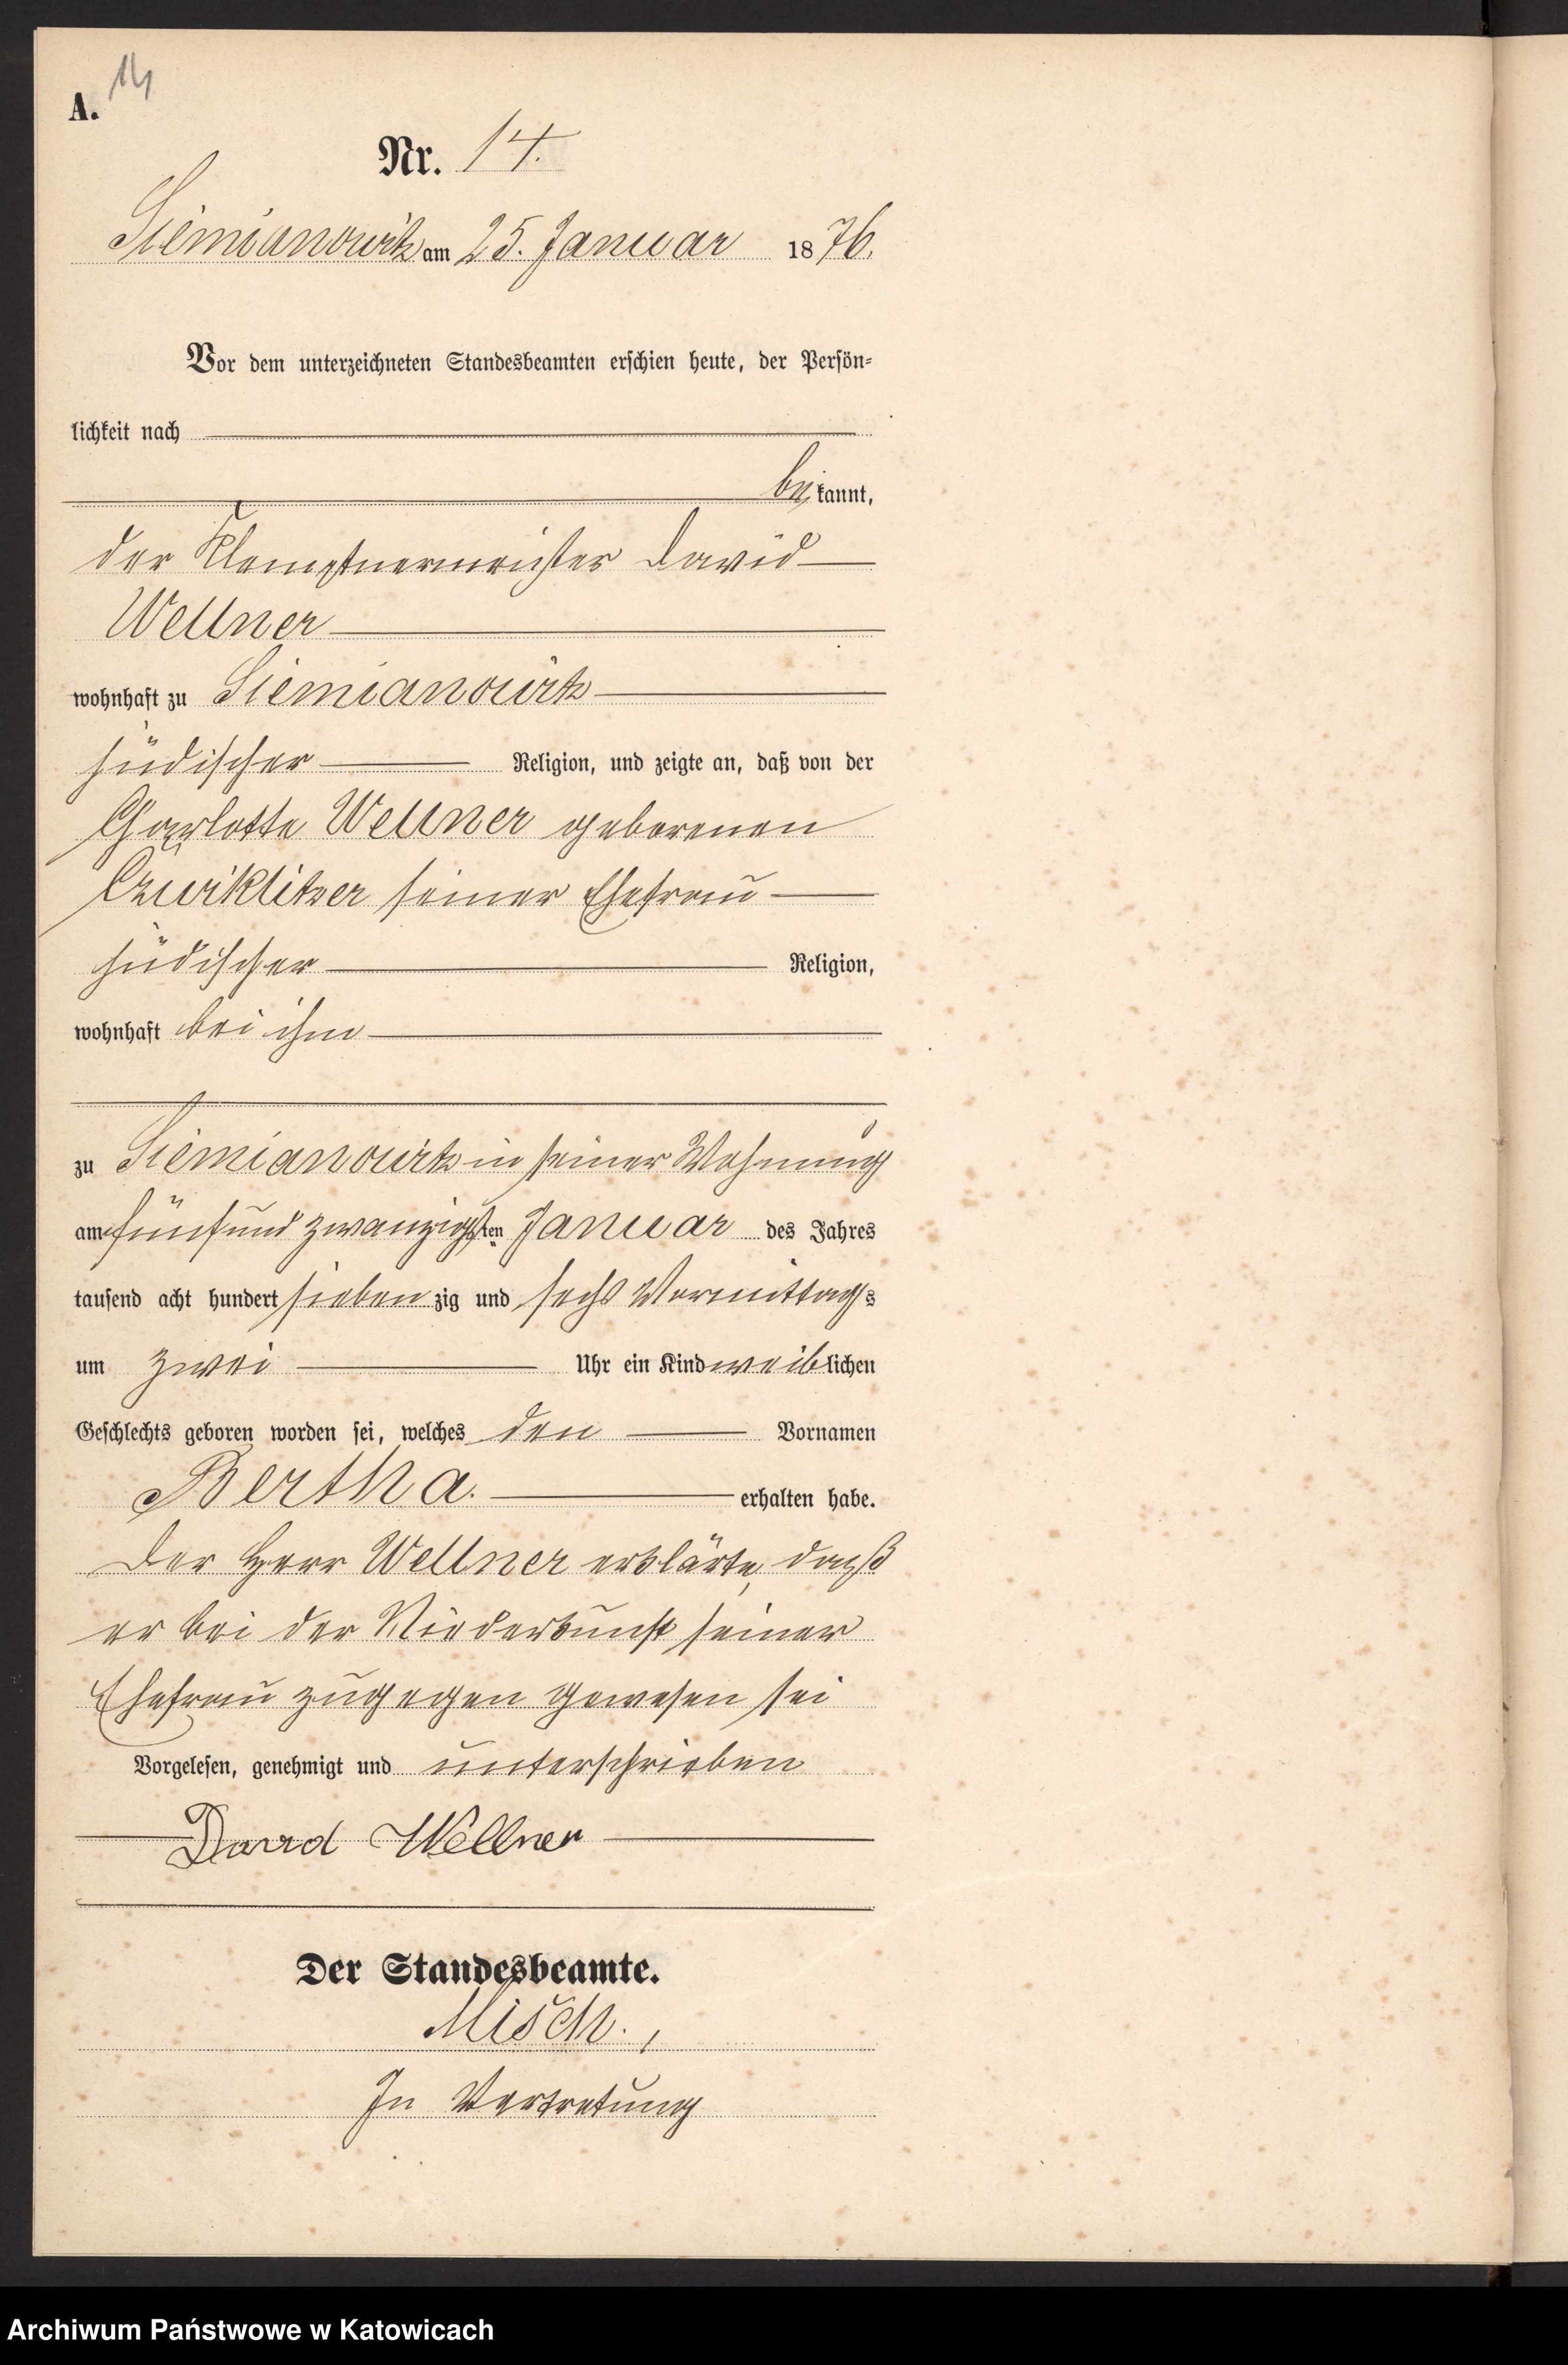 14
A.
Nr. 14.
Siemianowitz am 25. Januar 1876.
Vor dem unterzeichneten Standesbeamten erschien heute, der Persön-
lichkeit nach
bekannt,
der Klempnermeister David
Wellner
wohnhaft zu Siemianowitz
jüdischer Religion, und zeigte an, daß von der
Charlotte Wellner geborenen
Czwiklitzer seiner Ehefrau
jüdischer Religion,
wohnhaft bei ihm
zu Siemianowitz in seiner Wohnung
am fünfund zwanzigsten Januar des Jahres
tausend acht hundert siebenzig und sechs Vormittags
um zwei Uhr ein Kind weiblichen
Geschlechts geboren worden sei, welches den Vornamen
Bertha. erhalten habe.
Der Herr Wellner erklärte, daß
er bei der Niederkunft seiner
Ehefrau zugegen gewesen sei
Vorgelesen, genehmigt und unterschrieben
David Wellner
Der Standesbeamte.
Misch.,
In Vertretung
Archiwum Państwowe w Katowicach